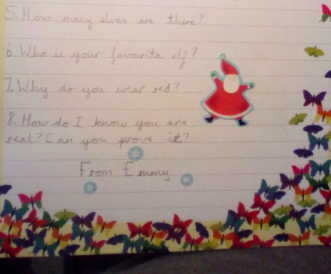 5. How many elves are there?
6. Who is your favourite elf?
7. Why do you wear red?
8. How do I know you are
real? Can you prove it?
From Emmy